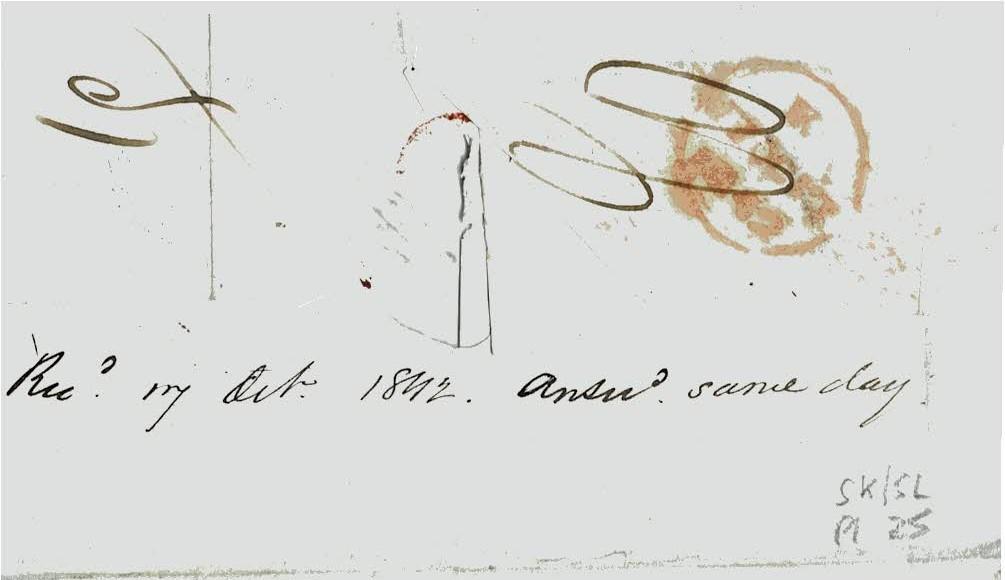 Recd. my Oct. 1842. Answd. same day
SK/SL
Pl 25